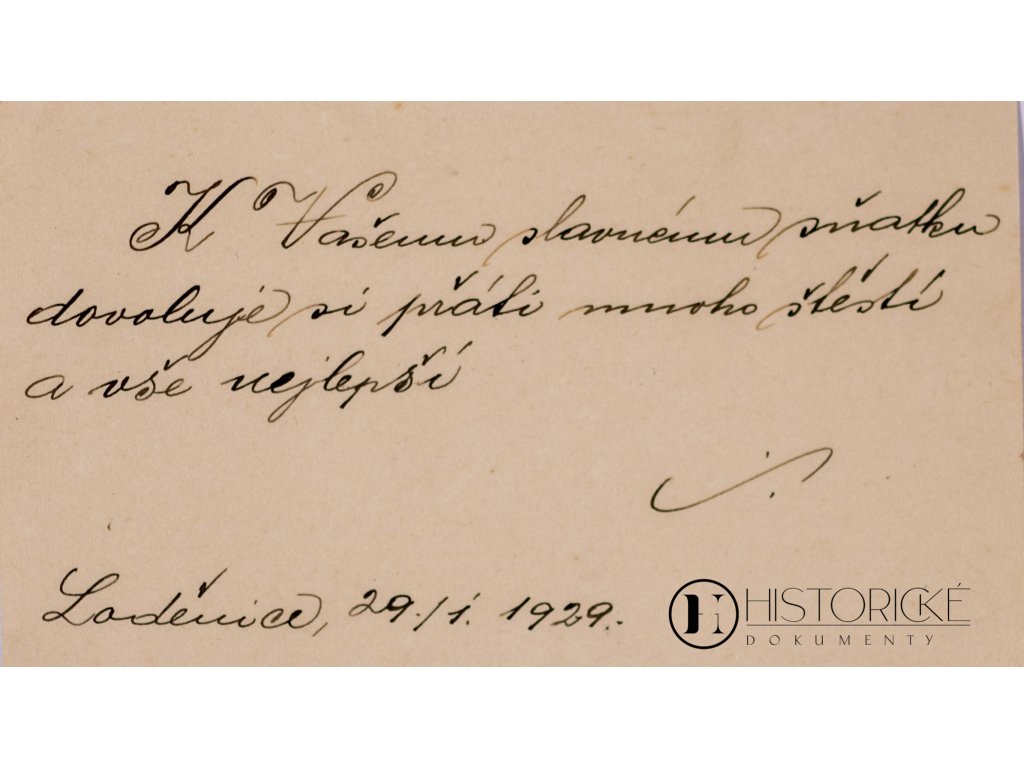 K Vašemu slavnému sňatku
dovoluje si přáti mnoho štěstí
a vše nejlepší
Loděnice, 29./1. 1929.
HISTORICKÉ
DOKUMENTY